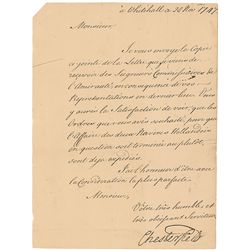 à Whitehall ce 28 Nov. 1747
Monsieur,
Je vous envoye la Copie
cy jointe de la Lettre que je viens de
recevoir des Seigneurs Commissaires de
l'Amirauté, en consequence de vos
Representations en dernier lieu. Vous
y aurez la Satisfaction de voir, que les
Ordres que vous avés souhaité pour que
l'Affaire des deux Navires Hollandois
en question soit terminée au plutôt,
sont déja expediés.
J'ai l'honneur d'être avec
la Consideration la plus parfaite
Monsieur,
Vôtre très humble, et
très obeissant Serviteur
Chesterfield